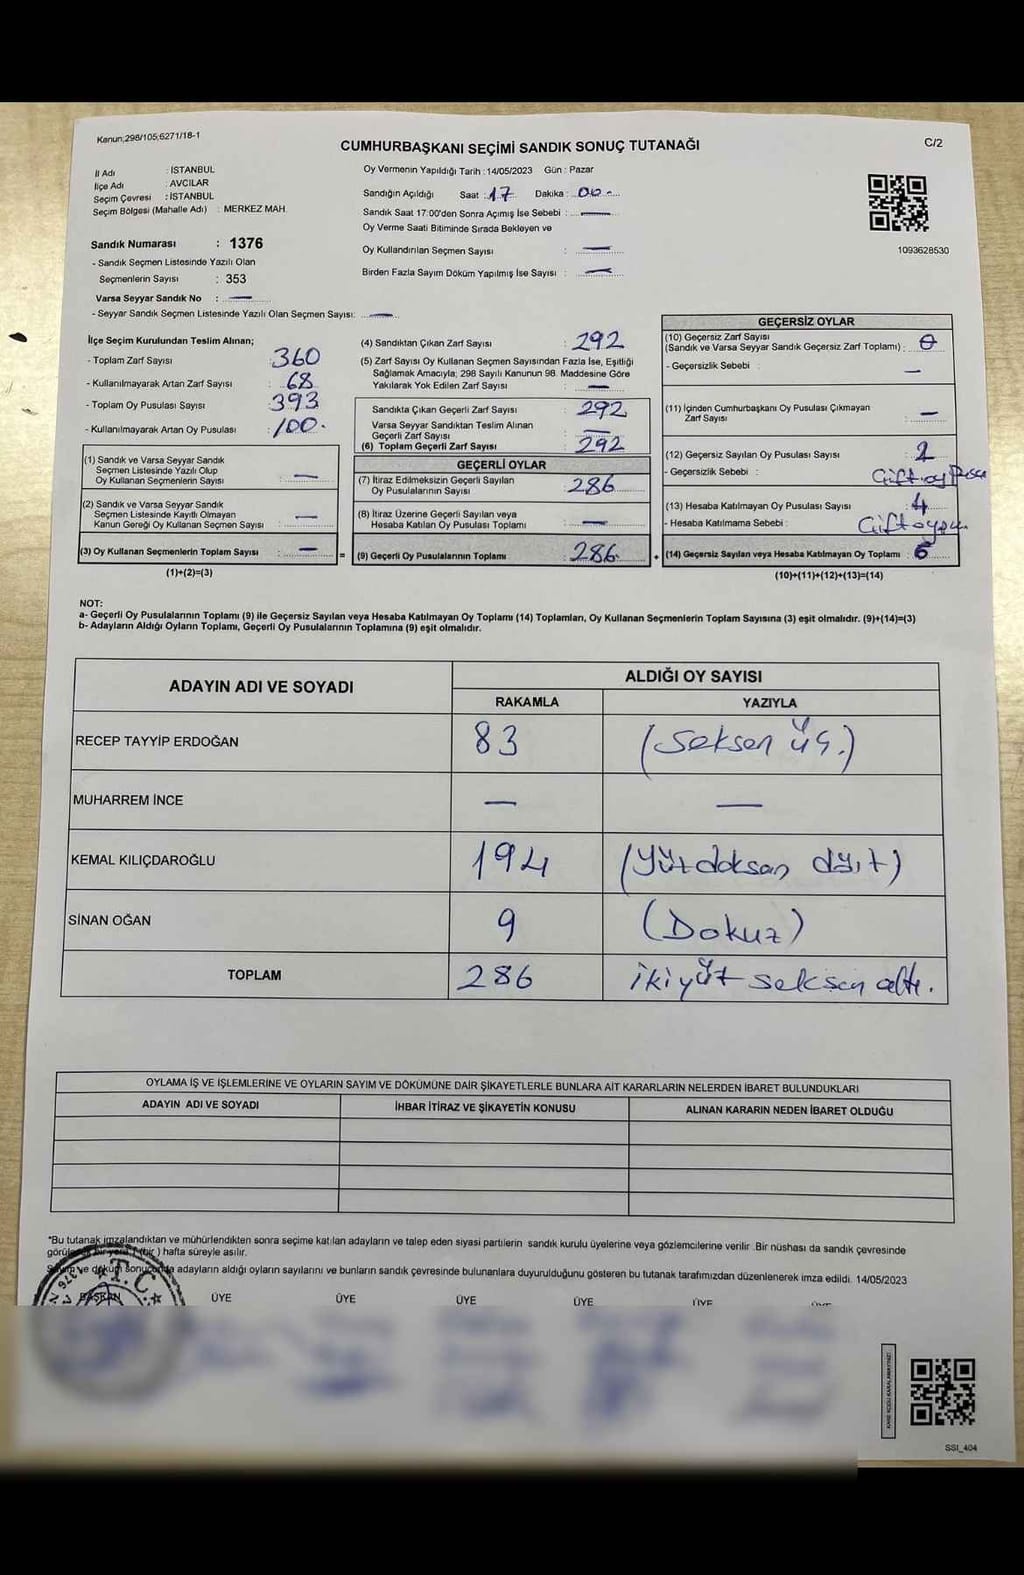 Kanun;298/105;6271/18-1
C/2
CUMHURBAŞKANI SEÇİMİ SANDIK SONUÇ TUTANAĞI
İl Adı : İSTANBUL
İlçe Adı : AVCILAR
Seçim Çevresi : İSTANBUL
Seçim Bölgesi (Mahalle Adı) : MERKEZ MAH.
Sandık Numarası : 1376
- Sandık Seçmen Listesinde Yazılı Olan
Seçmenlerin Sayısı : 353
Varsa Seyyar Sandık No : —
- Seyyar Sandık Seçmen Listesinde Yazılı Olan Seçmen Sayısı: —
Oy Vermenin Yapıldığı Tarih : 14/05/2023 Gün : Pazar
Sandığın Açıldığı Saat : 17 Dakika : 00
Sandık Saat 17:00'den Sonra Açımış İse Sebebi : —
Oy Verme Saati Bitiminde Sırada Bekleyen ve
Oy Kullandırılan Seçmen Sayısı : —
Birden Fazla Sayım Döküm Yapılmış İse Sayısı : —
1093628530
İlçe Seçim Kurulundan Teslim Alınan;
- Toplam Zarf Sayısı : 360
- Kullanılmayarak Artan Zarf Sayısı : 68
- Toplam Oy Pusulası Sayısı : 393
- Kullanılmayarak Artan Oy Pusulası : 100.
(1) Sandık ve Varsa Seyyar Sandık
Seçmen Listesinde Yazılı Olup
Oy Kullanan Seçmenlerin Sayısı : —
(2) Sandık ve Varsa Seyyar Sandık
Seçmen Listesinde Kayıtlı Olmayan
Kanun Gereği Oy Kullanan Seçmen Sayısı : —
(3) Oy Kullanan Seçmenlerin Toplam Sayısı : — =
(1)+(2)=(3)
(4) Sandıktan Çıkan Zarf Sayısı : 292
(5) Zarf Sayısı Oy Kullanan Seçmen Sayısından Fazla İse, Eşitliği
Sağlamak Amacıyla; 298 Sayılı Kanunun 98. Maddesine Göre
Yakılarak Yok Edilen Zarf Sayısı : —
Sandıkta Çıkan Geçerli Zarf Sayısı : 292
Varsa Seyyar Sandıktan Teslim Alınan
Geçerli Zarf Sayısı : —
(6) Toplam Geçerli Zarf Sayısı : 292
GEÇERLİ OYLAR
(7) İtiraz Edilmeksizin Geçerli Sayılan
Oy Pusulalarının Sayısı : 286
(8) İtiraz Üzerine Geçerli Sayılan veya
Hesaba Katılan Oy Pusulası Toplamı : —
(9) Geçerli Oy Pusulalarının Toplamı : 286 +
GEÇERSİZ OYLAR
(10) Geçersiz Zarf Sayısı
(Sandık ve Varsa Seyyar Sandık Geçersiz Zarf Toplamı) : 0
- Geçersizlik Sebebi : —
(11) İçinden Cumhurbaşkanı Oy Pusulası Çıkmayan
Zarf Sayısı : —
(12) Geçersiz Sayılan Oy Pusulası Sayısı : 2
- Geçersizlik Sebebi : Çift oy
(13) Hesaba Katılmayan Oy Pusulası Sayısı : 4
- Hesaba Katılmama Sebebi : Çift oy
(14) Geçersiz Sayılan veya Hesaba Katılmayan Oy Toplamı : 6
(10)+(11)+(12)+(13)=(14)
NOT:
a- Geçerli Oy Pusulalarının Toplamı (9) ile Geçersiz Sayılan veya Hesaba Katılmayan Oy Toplamı (14) Toplamları, Oy Kullanan Seçmenlerin Toplam Sayısına (3) eşit olmalıdır. (9)+(14)=(3)
b- Adayların Aldığı Oyların Toplamı, Geçerli Oy Pusulalarının Toplamına (9) eşit olmalıdır.
ADAYIN ADI VE SOYADI
ALDIĞI OY SAYISI
RAKAMLA YAZIYLA
RECEP TAYYİP ERDOĞAN 83 (Seksen üç.)
MUHARREM İNCE — —
KEMAL KILIÇDAROĞLU 194 (Yüzdoksan dört)
SİNAN OĞAN 9 (Dokuz)
TOPLAM 286 ikiyüz seksen altı.
OYLAMA İŞ VE İŞLEMLERİNE VE OYLARIN SAYIM VE DÖKÜMÜNE DAİR ŞİKAYETLERLE BUNLARA AİT KARARLARIN NELERDEN İBARET BULUNDUKLARI
ADAYIN ADI VE SOYADI İHBAR İTİRAZ VE ŞİKAYETİN KONUSU ALINAN KARARIN NEDEN İBARET OLDUĞU
*Bu tutanak imzalandıktan ve mühürlendikten sonra seçime katılan adayların ve talep eden siyasi partilerin sandık kurulu üyelerine veya gözlemcilerine verilir. Bir nüshası da sandık çevresinde
görülecek bir yere 1 (bir ) hafta süreyle asılır.
Sayım ve döküm sonucunda adayların aldığı oyların sayılarını ve bunların sandık çevresinde bulunanlara duyurulduğunu gösteren bu tutanak tarafımızdan düzenlenerek imza edildi. 14/05/2023
BAŞKAN ÜYE ÜYE ÜYE ÜYE ÜYE ÜYE
T.C.
SSI_404